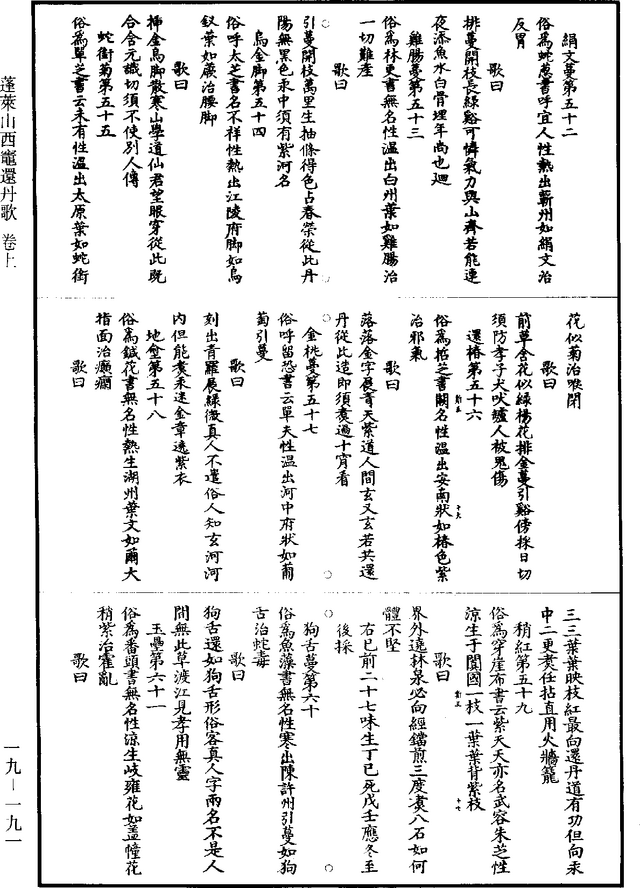 絹文蔓第五十二
俗爲蛇葱書呼宜人性熱出蘄州如絹文治
反胃
歌曰
排蔓開枝長綠谿可憐氣力與山齊若能連
夜添魚水白骨埋年尚也迴
雞腸蔓第五十三
俗爲林更書無名性溫出白州葉如雞腸治
一切難産
歌曰
引蔓開枝萬里生抽條得色占春榮從此丹
陽無黑色汞中須有紫河名
烏金脚第五十四
俗呼太芝書名不祥性熱出江陵府脚如烏
釵葉如蕨治腰脚
歌曰
揷金烏脚散寒山學道仙君望眼穿從此旣
合含元識切須不使別人傳
蛇銜菊第五十五
俗爲單芝書云未有性溫出太原葉如蛇銜
花似菊治喉閉
歌曰
前草含花似綠楊花排金蔓引谿傍採日切
須防孝子犬吠爐人被鬼傷
還椿第五十六
俗爲栝芝書闕名性溫出安南狀如椿色紫
治邪氣
歌曰
落落金字展青天紫道人間玄又玄若共還
丹從此造即須煑過十宵看
金桃蔓第五十七
俗呼留恐書云單夫性溫出河中府狀如蔄
蔔引蔓
歌曰
刻出青羅展綠微眞人不遣俗人知玄河河
内但能煑汞迷金章逸紫衣
地龠第五十八
俗爲鍼花書無名性熱生湖州葉文如蔄大
指面治癲癎
歌曰
三三葉葉映枝紅最向還丹道有功但向汞
中二更煑任拈直用火牆籠
稍紅第五十九
俗爲穿崖布書云紫天天亦名武容朱芝性
涼生于闐國一枝一葉葉背紫枝
歌曰
界外遠林泉必向經鐺煎三度煑八石如何
體不堅
右已前二十七味生丁巳死戊壬應冬至
後採
狗舌蔓第六十
俗爲魚藻書無名性寒出陳許州引蔓如狗
舌治蛇毒
歌曰
狗舌還如狗舌形俗客眞人字兩名不是人
間無此草渡江見孝用無靈
玉壘第六十一
俗爲番頭書無名性涼生岐雍花如蓋幢花
稍紫治霍亂
歌曰
蓬萊山西竈還丹歌 卷上
一九－一九一